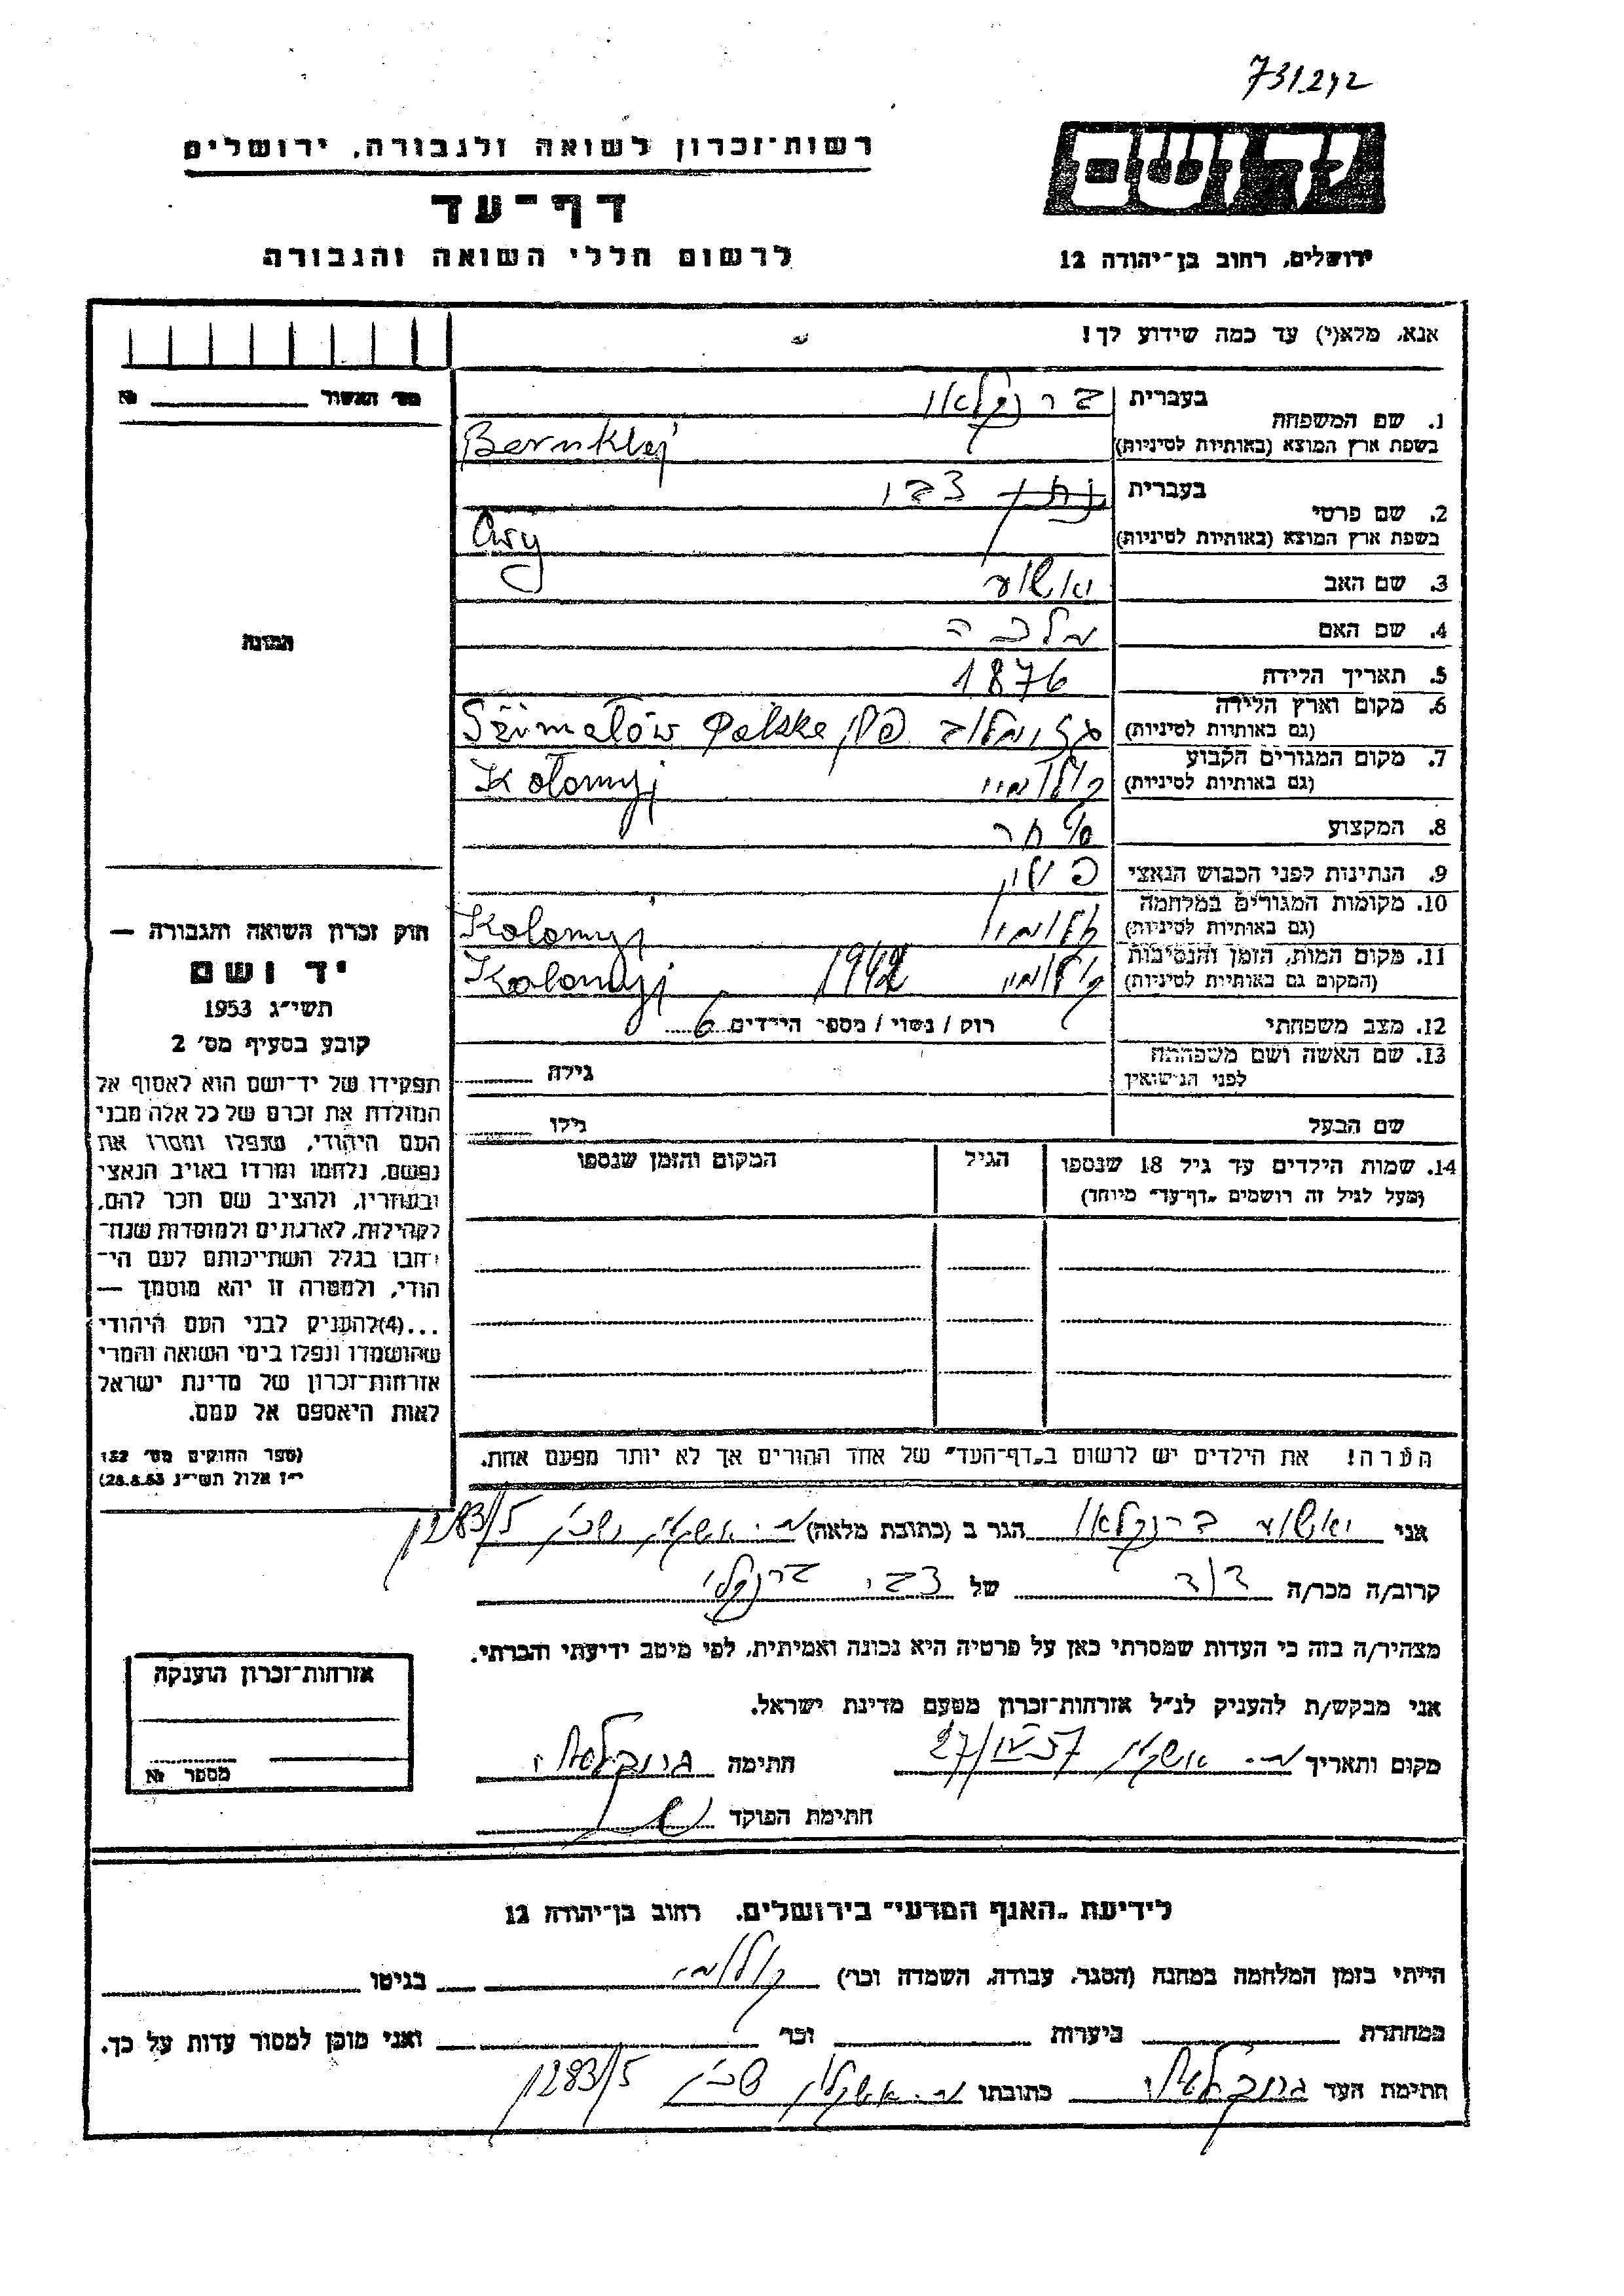 731242
רשות־זכרון לשואה ולגבורה, ירושלים
יד ושם
דף־עד
לרשום חללי השואה והגבורה
ירושלים, רחוב בן־יהודה 12
אנא, מלא(י) עד כמה שידוע לך!
מס' האשור №
1. שם המשפחה
בעברית
בשפת ארץ המוצא (באותיות לטיניות) Bernklej
2. שם פרטי
בעברית צבי
בשפת ארץ המוצא (באותיות לטיניות)
3. שם האב יאשוע
4. שם האם מלכה
5. תאריך הלידה 1876
6. מקום וארץ הלידה פולין Polske
(גם באותיות לטיניות)
7. מקום המגורים הקבוע קולומיי Kołomyj
(גם באותיות לטיניות)
8. המקצוע סוחר
9. הנתינות לפני הכבוש הנאצי פולין
10. מקומות המגורים במלחמה קולומיי Kolomyj
(גם באותיות לטיניות)
11. מקום המות, הזמן והנסיבות קולומיי 1942 Kolomyj
(המקום גם באותיות לטיניות)
12. מצב משפחתי רוק / נשוי / מספר הילדים 6
13. שם האשה ושם משפחתה
לפני הנישואין גילה
שם הבעל גילו
14. שמות הילדים עד גיל 18 שנספו הגיל המקום והזמן שנספו
(מעל לגיל זה רושמים „דף־עד" מיוחד)
הערה! את הילדים יש לרשום ב„דף־העד" של אחד ההורים אך לא יותר מפעם אחת.
התמונה
חוק זכרון השואה והגבורה —
יד ושם
תשי״ג 1953
קובע בסעיף מס' 2
תפקידו של יד־ושם הוא לאסוף אל
המולדת את זכרם של כל אלה מבני
העם היהודי, שנפלו ומסרו את
נפשם, נלחמו ומרדו באויב הנאצי
ובעוזריו, ולהציב שם וזכר להם,
לקהילות, לארגונים ולמוסדות שנח־
רבו בגלל השתייכותם לעם הי־
הודי, ולמטרה זו יהא מוסמך —
...(4)להעניק לבני העם היהודי
שהושמדו ונפלו בימי השואה והמרי
אזרחות־זכרון של מדינת ישראל
לאות היאספם אל עמם.
(ספר החוקים מס' 132
י״ז אלול תשי״ג 28.8.53)
אני יאשוע הגר ב (כתובת מלאה) אשקלון שכון 283/5
קרוב/ה מכר/ה דוד של צבי
מצהיר/ה בזה כי העדות שמסרתי כאן על פרטיה היא נכונה ואמיתית, לפי מיטב ידיעתי והכרתי.
אני מבקש/ת להעניק לנ״ל אזרחות־זכרון מטעם מדינת ישראל.
מקום ותאריך אשקלון 27/IV 57 חתימה
חתימת הפוקד
אזרחות־זכרון הוענקה
מספר №
לידיעת „האגף המדעי" בירושלים, רחוב בן־יהודה 12
הייתי בזמן המלחמה במחנה (הסגר, עבודה, השמדה וכו') קולומיי בגיטו
במחתרת ביערות וכו' ואני מוכן למסור עדות על כך.
חתימת העד כתובתו אשקלון שכון 283/5